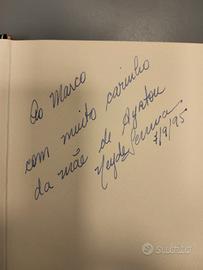 Ao Marco
com muito carinho
da mãe de Ayrton
Neyde Senna
7/9/95
Subito